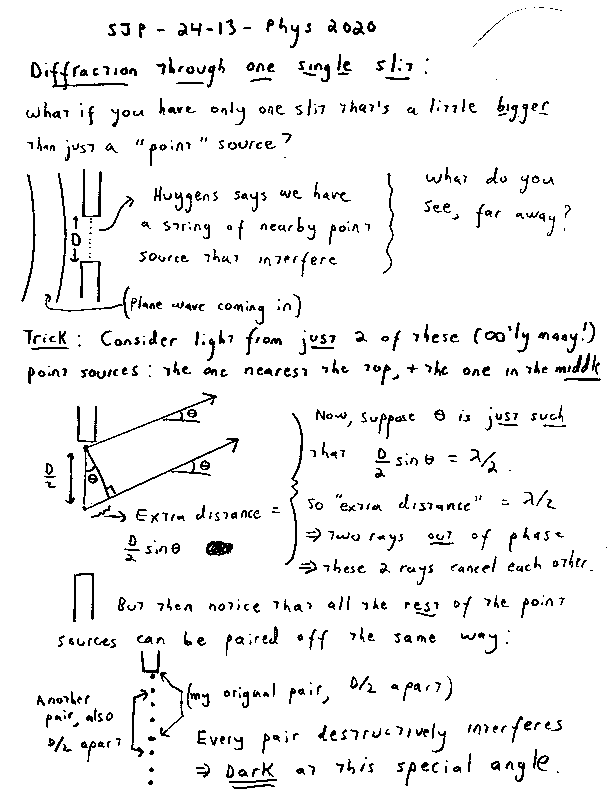 SJP - 24-13 - Phys 2020
Diffraction through one single slit:
What if you have only one slit that's a little bigger
than just a "point" source?
Huygens says we have
a string of nearby point
source that interfere
What do you
see, far away?
D
(plane wave coming in)
Trick: Consider light from just 2 of these (∞'ly many!)
point sources: the one nearest the top, + the one in the middle
θ
θ
θ
D/2
Extra distance =
D/2 sin θ
Now, suppose θ is just such
that D/2 sin θ = λ/2.
so "extra distance" = λ/2
⇒ two rays out of phase
⇒ these 2 rays cancel each other.
But then notice that all the rest of the point
sources can be paired off the same way:
(my original pair, D/2 apart)
Another
pair, also
D/2 apart
Every pair destructively interferes
⇒ Dark at this special angle.